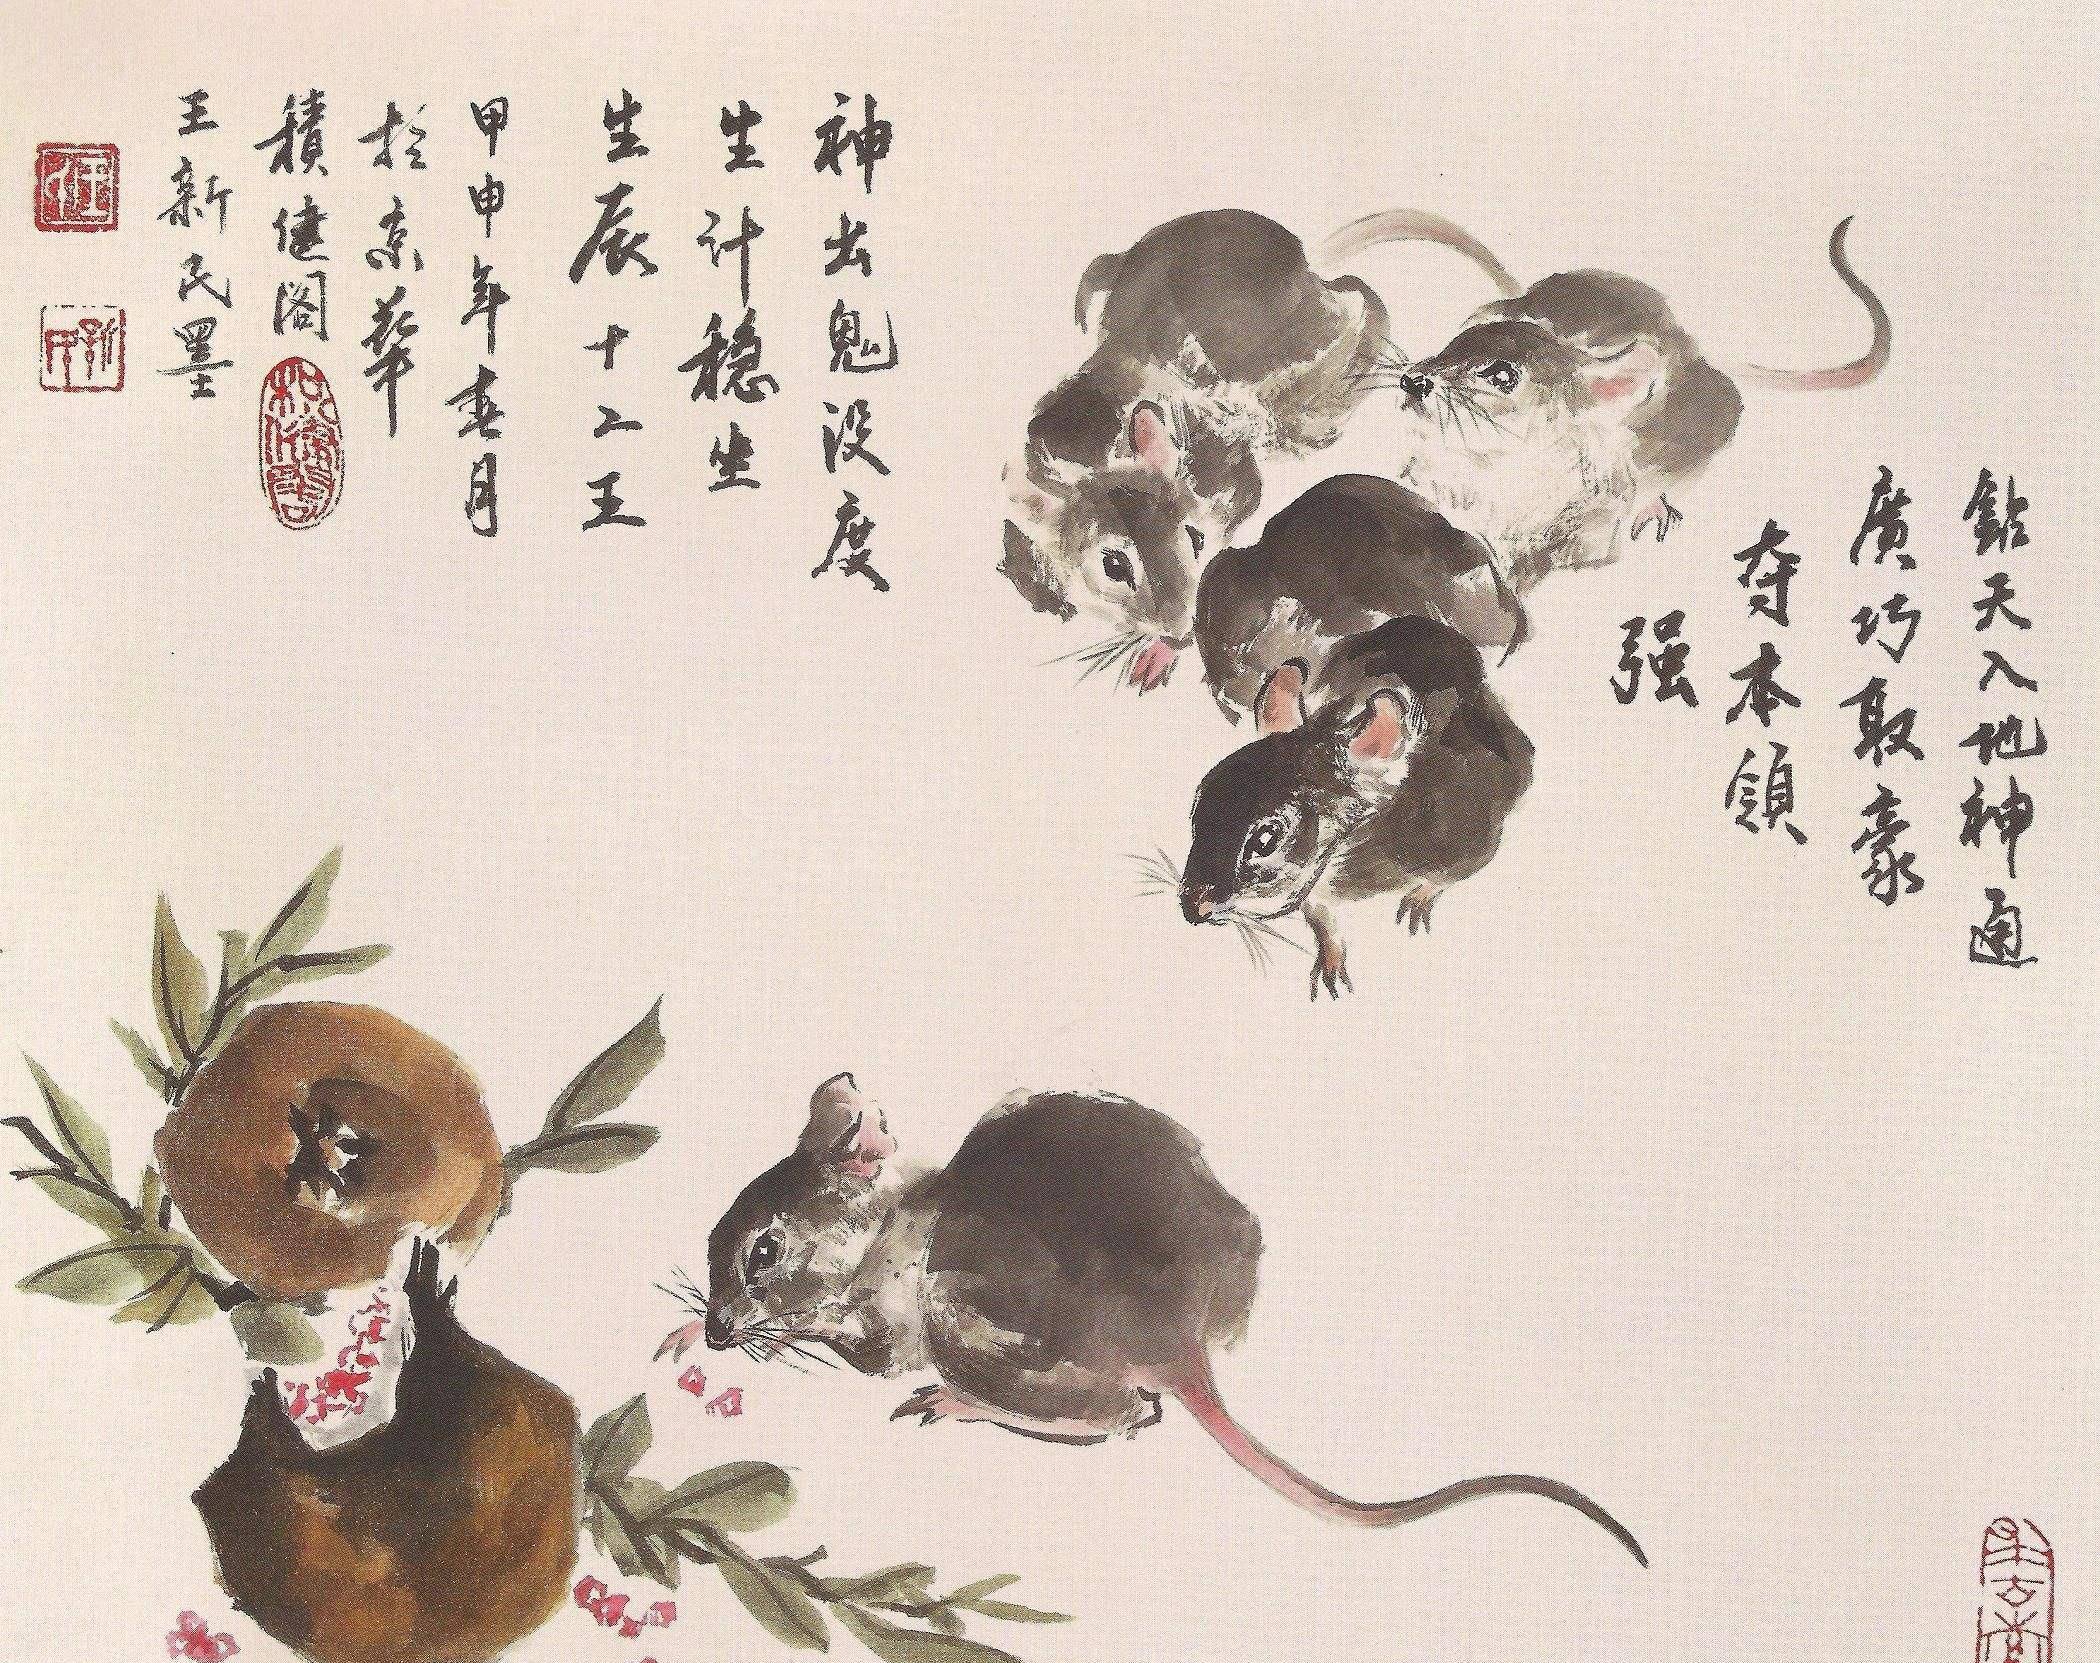 鉆天入地神通
廣巧取豪
夺本領
强
神出鬼没度
生计穏坐
生辰十二王
甲申年春月
於京華
積健阁
王新民墨